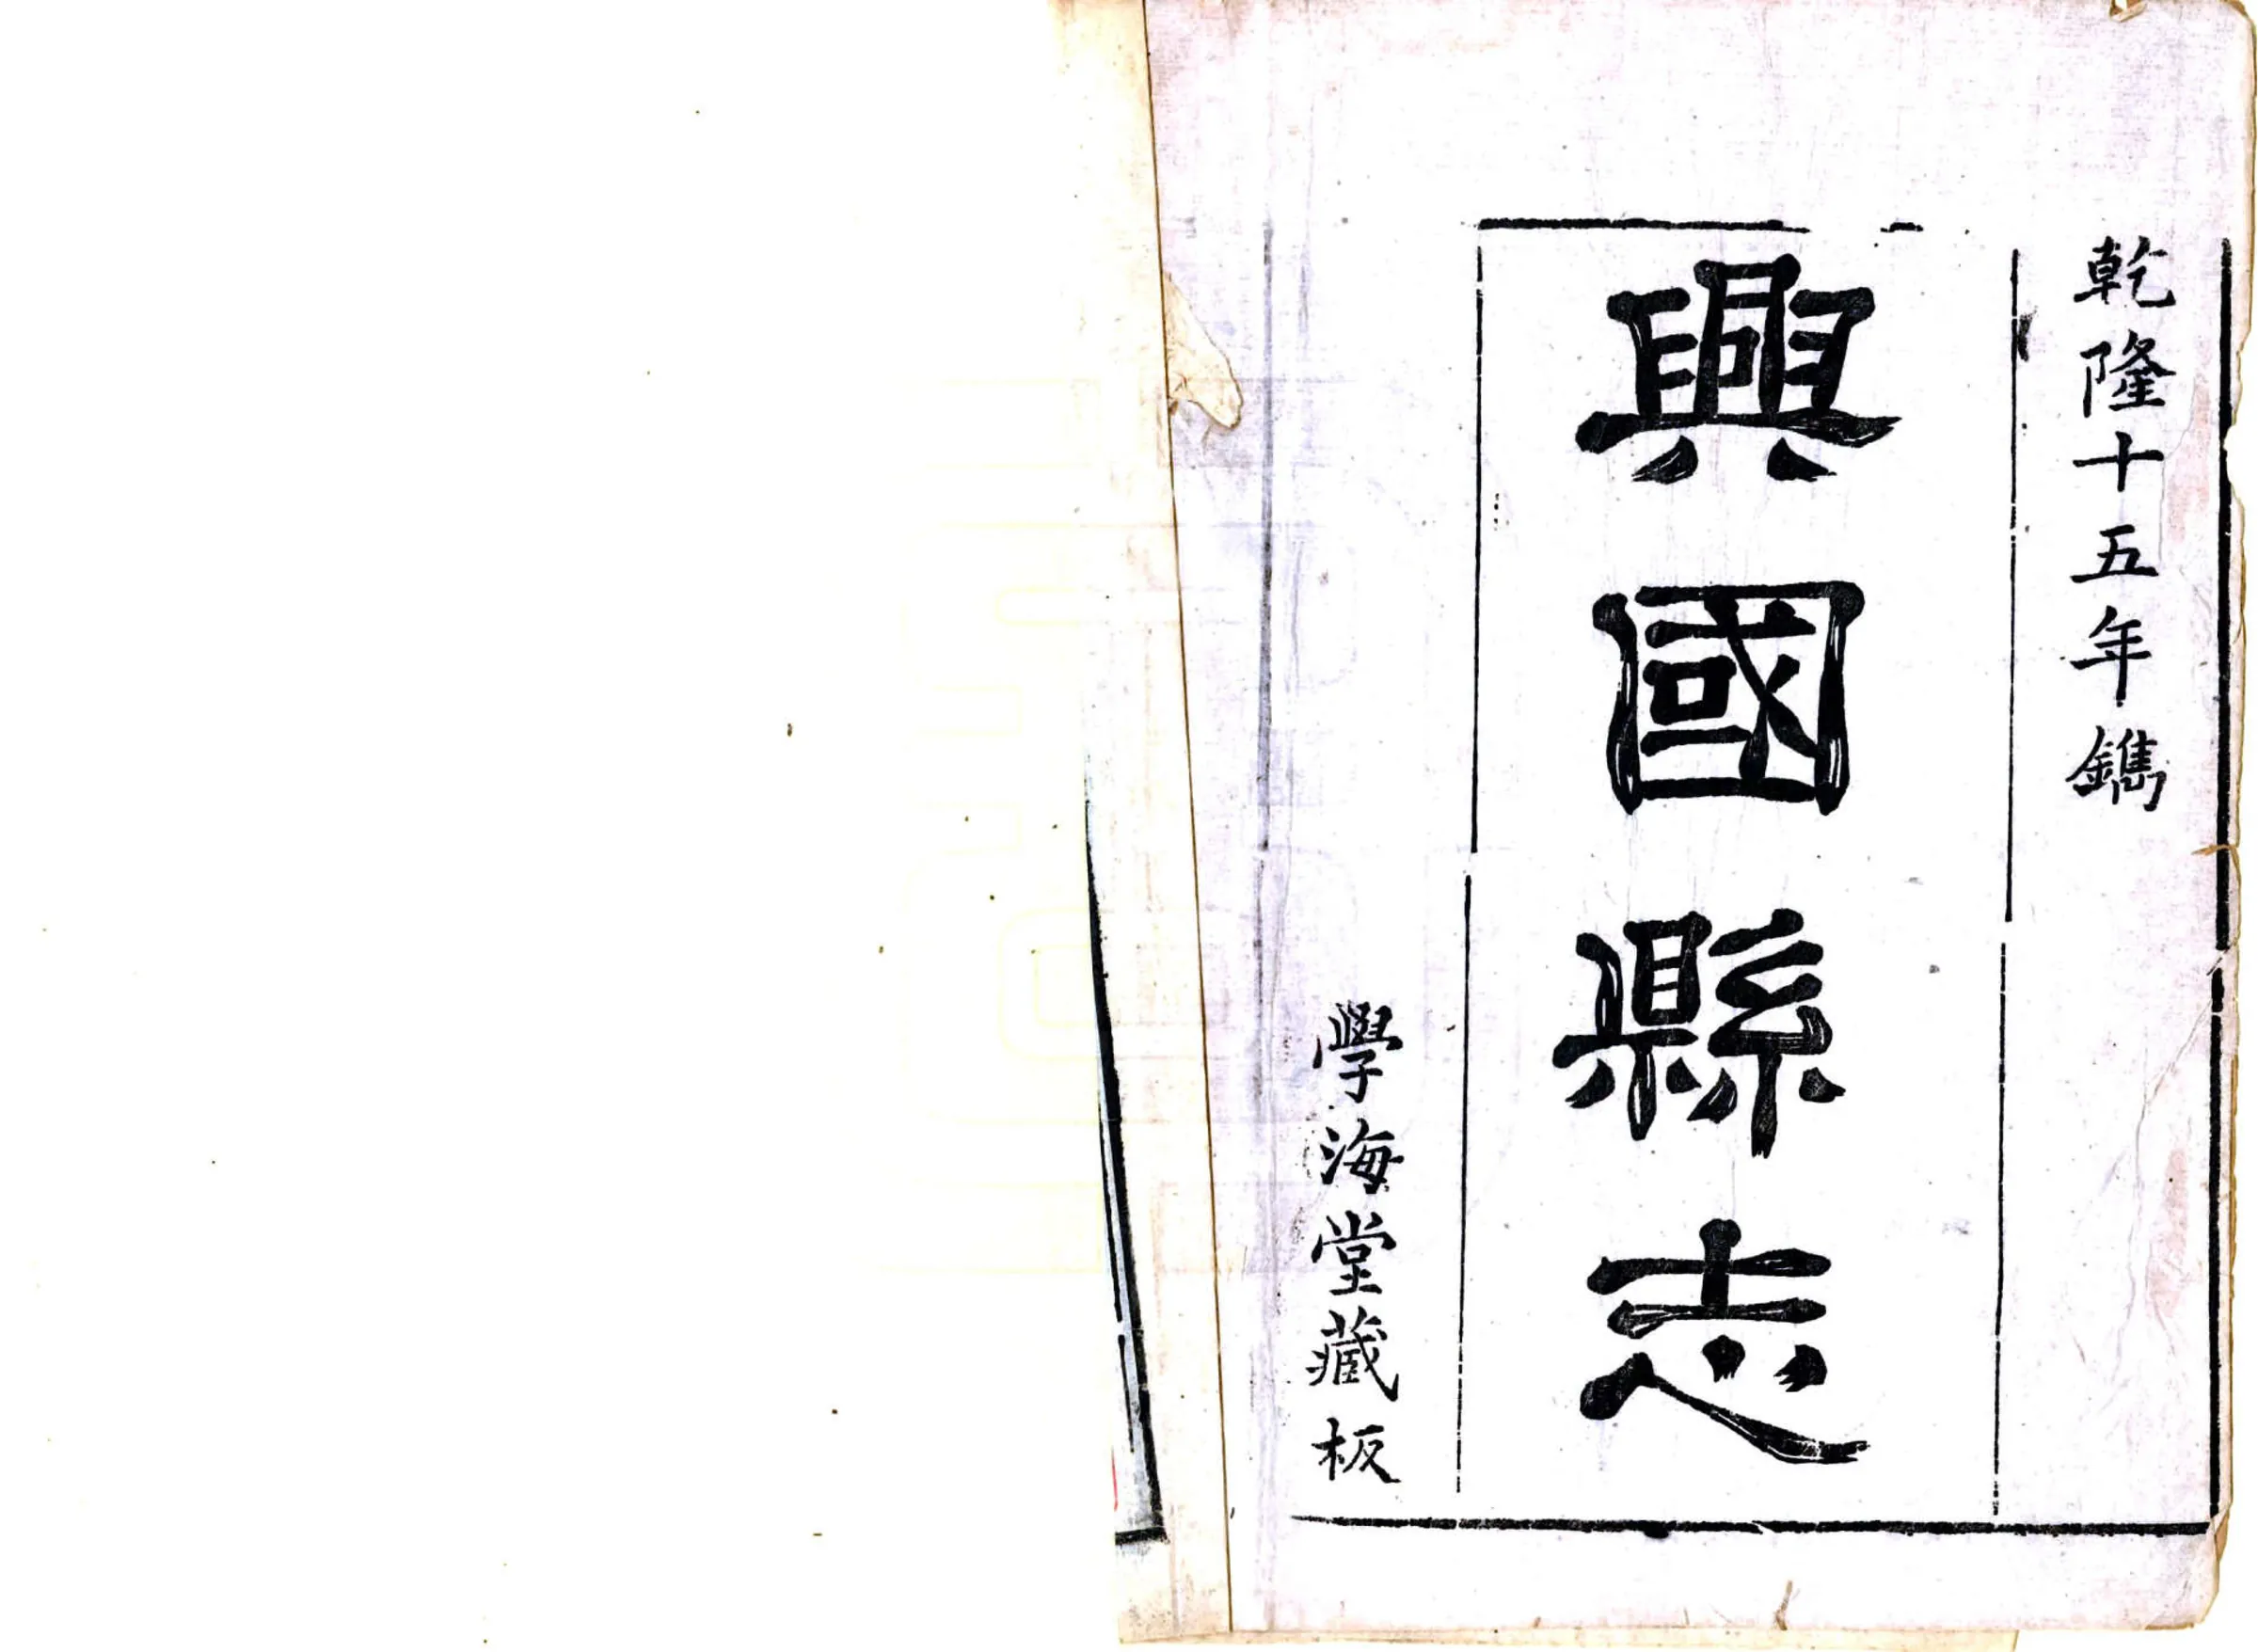 乾隆十五年鐫
興國縣志
學海堂藏板